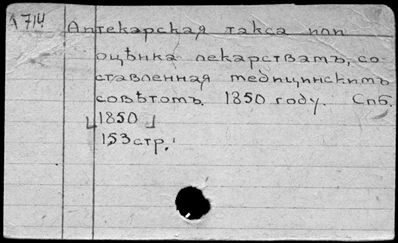 А 714
Аптекарская такса или
оцѣнка лекарствамъ, со-
ставленная медицинскимъ
совѣтомъ 1850 году. Спб.
[1850]
153 стр.